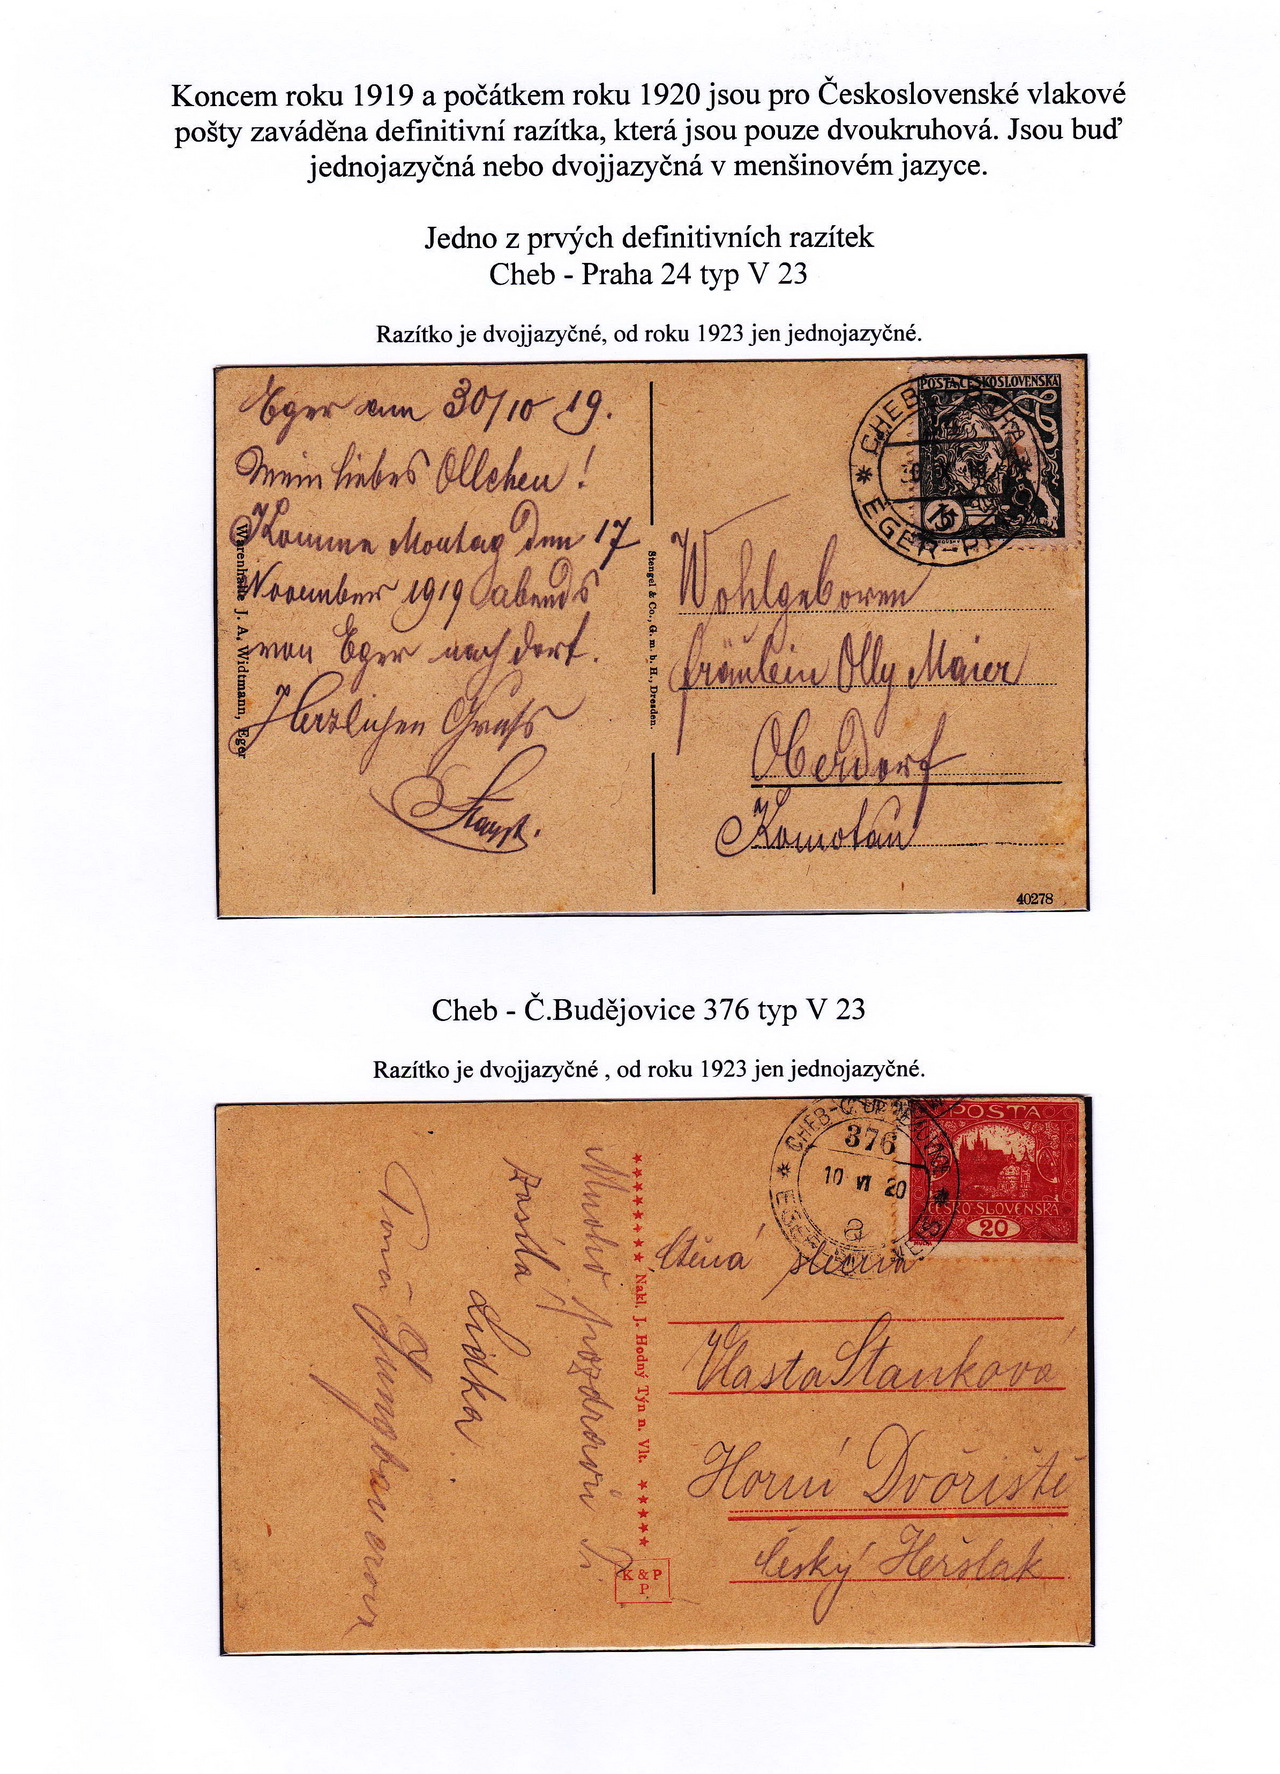 Koncem roku 1919 a počátkem roku 1920 jsou pro Československé vlakové
pošty zaváděna definitivní razítka, která jsou pouze dvoukruhová. Jsou buď
jednojazyčná nebo dvojjazyčná v menšinovém jazyce.
Jedno z prvých definitivních razítek
Cheb - Praha 24 typ V 23
Razítko je dvojjazyčné, od roku 1923 jen jednojazyčné.
Eger am 30/10 19.
Mein liebes Ollchen!
Komme Montag den 17
November 1919 abends
von Eger nach dort.
Herzlichen Gruß
Warenhalle J. A. Widtmann, Eger
Stengel & Co., G. m. b. H., Dresden.
POSTA ČESKOSLOVENSKÁ
15
CHEB
EGER-P
Wohlgeboren
Fräulein Olly Maier
Oberdorf
Komotau
40278
Cheb - Č.Budějovice 376 typ V 23
Razítko je dvojjazyčné , od roku 1923 jen jednojazyčné.
Mnoho pozdravů
zasílá
Lidka.
Nakl. J. Hodný Týn n. Vlt.
K & P
P.
CHEB-Č.
376
10 VI 20
EGER
POSTA
ČESKO-SLOVENSKÁ
20
MUCHA
Ctěná slečna
Vlasta Stanková
Horní Dvořiště
Český Heršlak